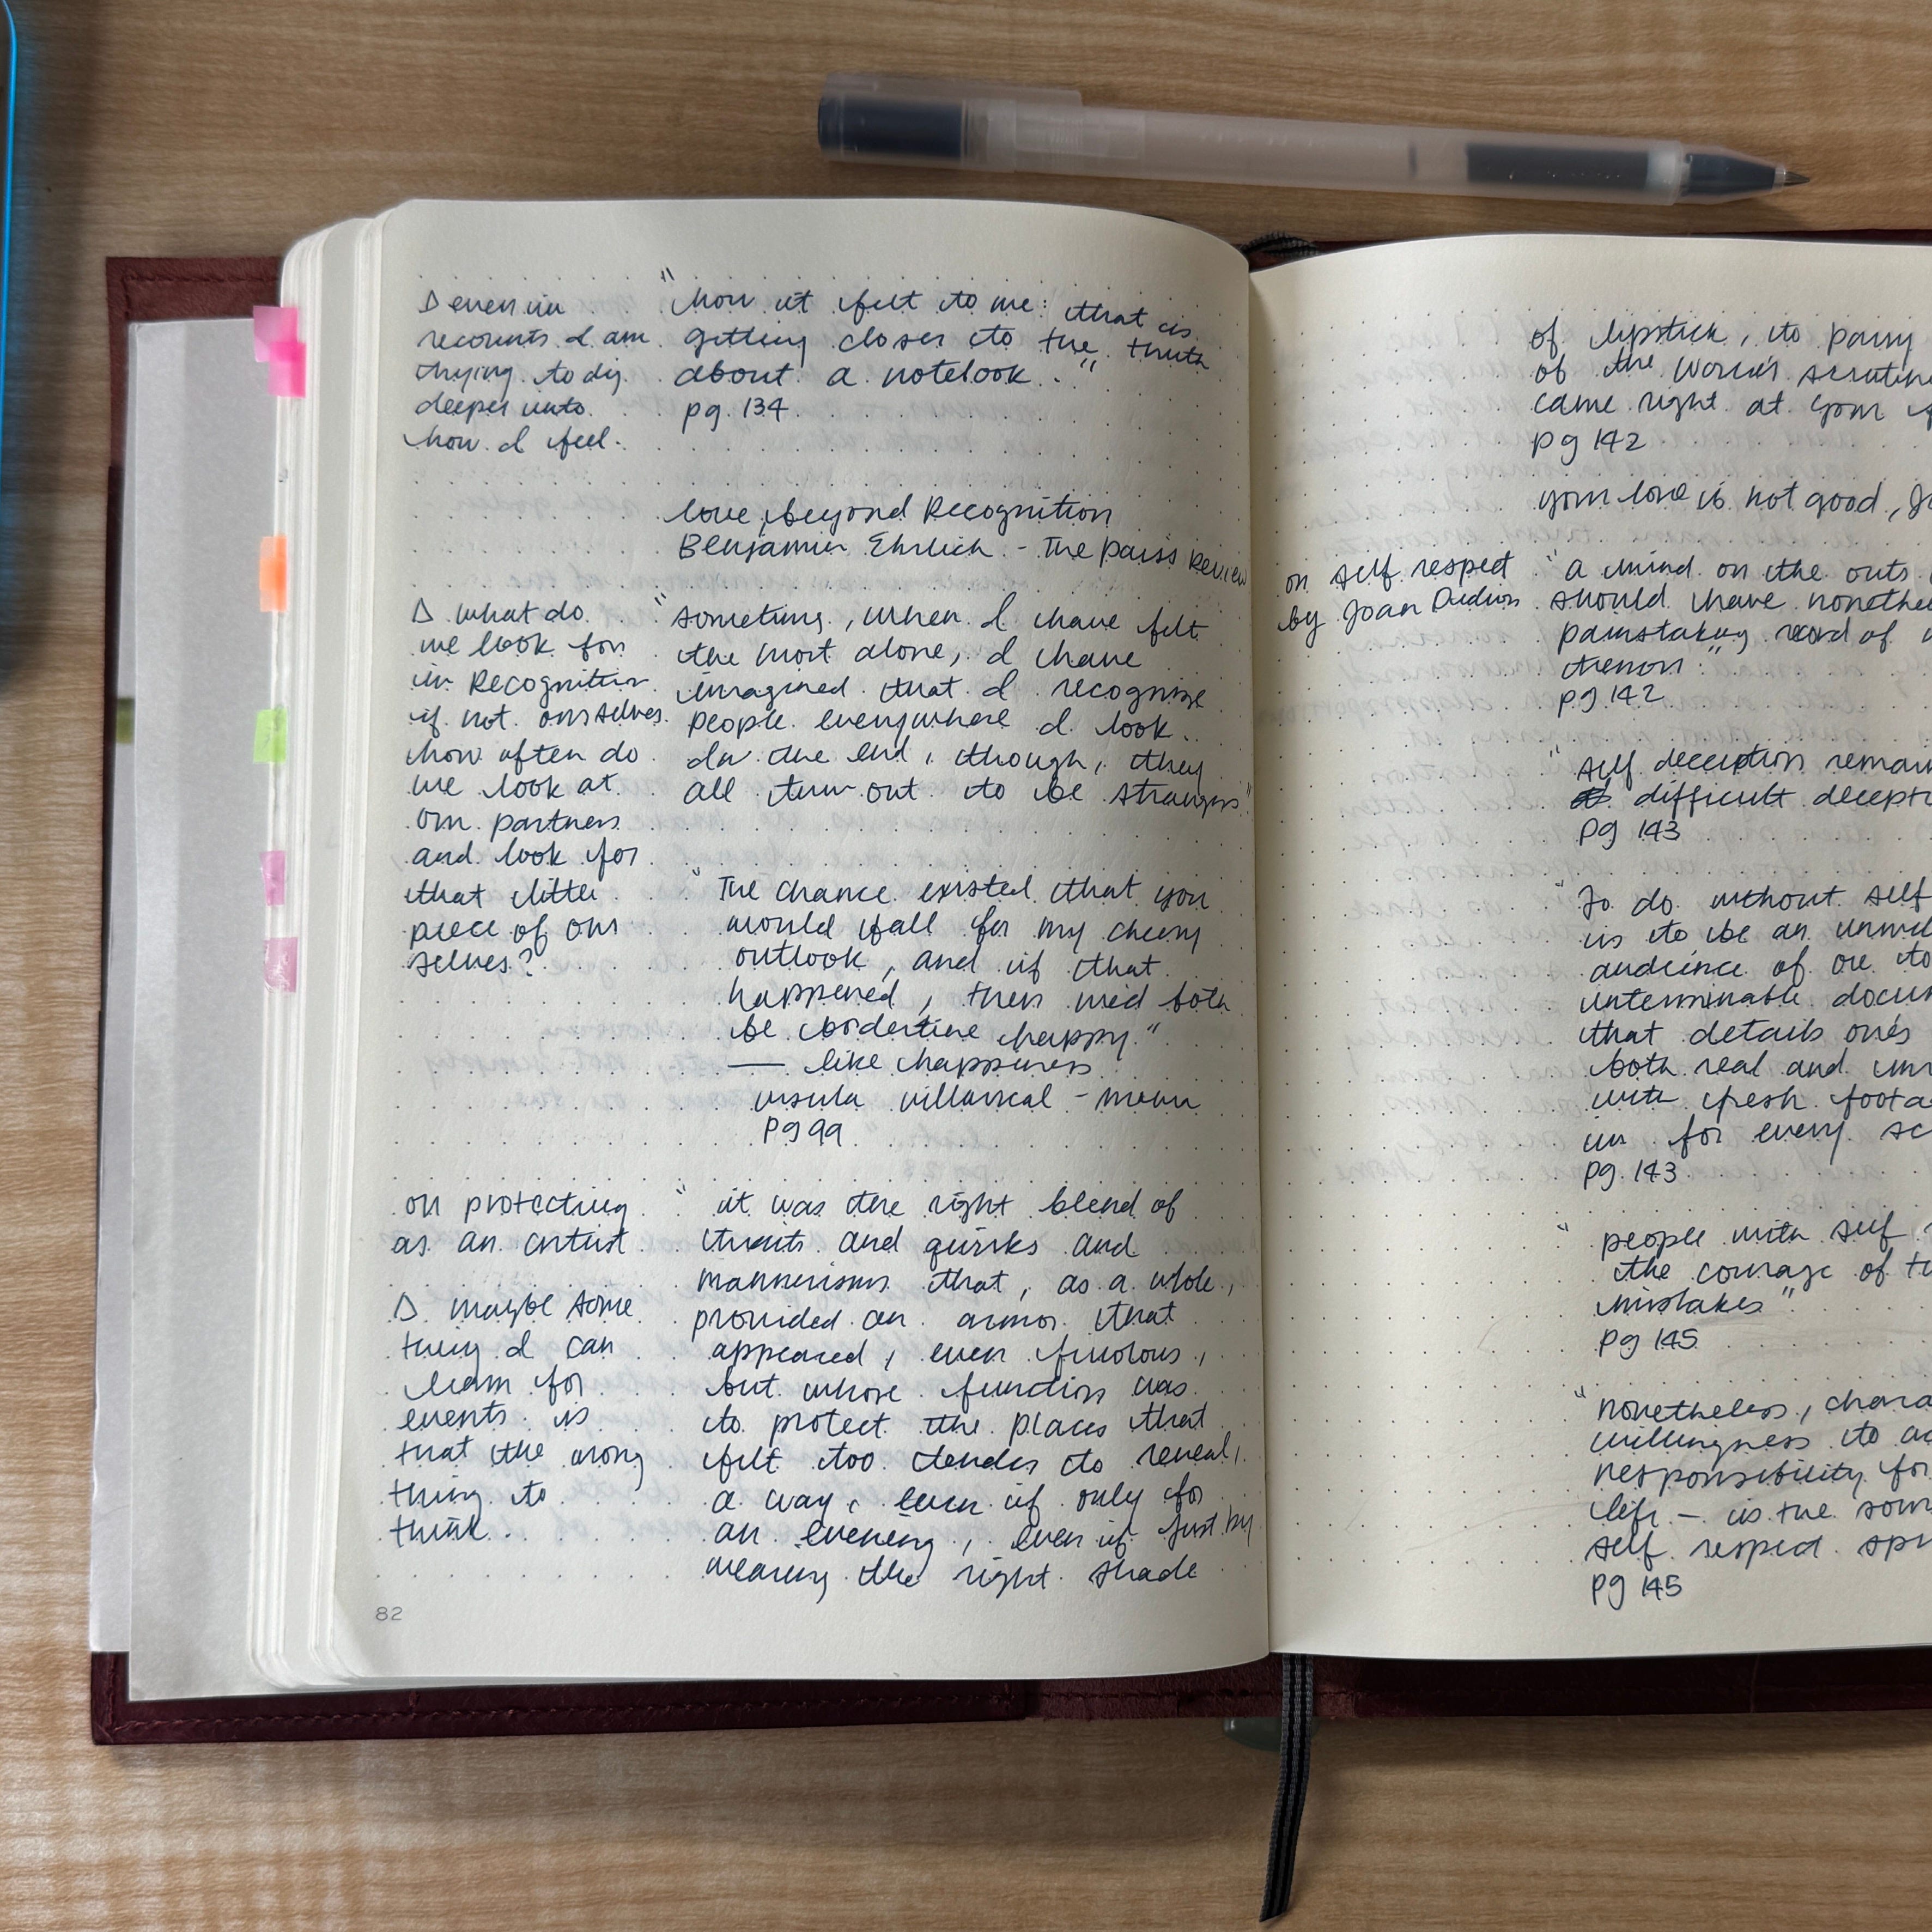 ▷ even in
recounts I am
trying to dig
deeper into
how I feel.
"how it felt to me: that is
getting closer to the truth
about a notebook."
pg. 134
love, beyond Recognition
Benjamin Ehrlich - The Paris Review
▷ what do
we look for
in Recognition
if not ourselves.
how often do
we look at
our partners
and look for
that little
piece of our
selves?
"sometimes, when I have felt
the most alone, I have
imagined that I recognize
people everywhere I look.
In the end, though, they
all turn out to be strangers"
"The chance existed that you
would fall for my cheery
outlook, and if that
happened, then we'd both
be borderline happy."
— like happiness
ursula villarreal-moura
pg 99
on protecting
as an artist
▷ maybe some
thing I can
learn for
events is
that the wrong
thing to
think.
"it was the right blend of
and quirks and
mannerisms that, as a whole,
provided an armor that
appeared, even frivolous,
but whose function was
to protect the places that
felt too tender to reveal,
a way, even if only for
an evening, even if just by
wearing the right shade
82
of lipstick, to parry
of the world's
came right at your
pg 142
your love is not good,
on self respect
by Joan Didion
"a mind on the outs
should have
painstaking record of
pg. 142
"self deception
difficult
pg 143
"To do without self
is to be an
audience of one to
interminable
that details one's
both real and
with fresh
in for every
pg. 143
"people with self
the courage of
mistakes"
pg 145
"nonetheless,
willingness to
responsibility for
life - is the
self respect
pg 145